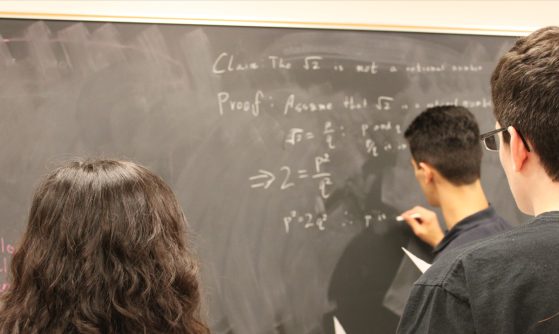 Claim The √2 is not a rational number
Proof: Assume that √2 is a rational number
√2 = p/q : p and q
p/q is in
⇒ 2 = p²/q²
p² = 2q² ∴ p is